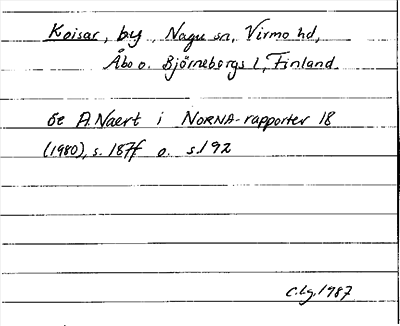 Koisar, by, Nagu sn, Virmo hd,
Åbo o. Björneborgs l, Finland.
Se A. Naert i NORNA-rapporter 18
(1980), s. 187f o. s. 192
C.Lg. 1987